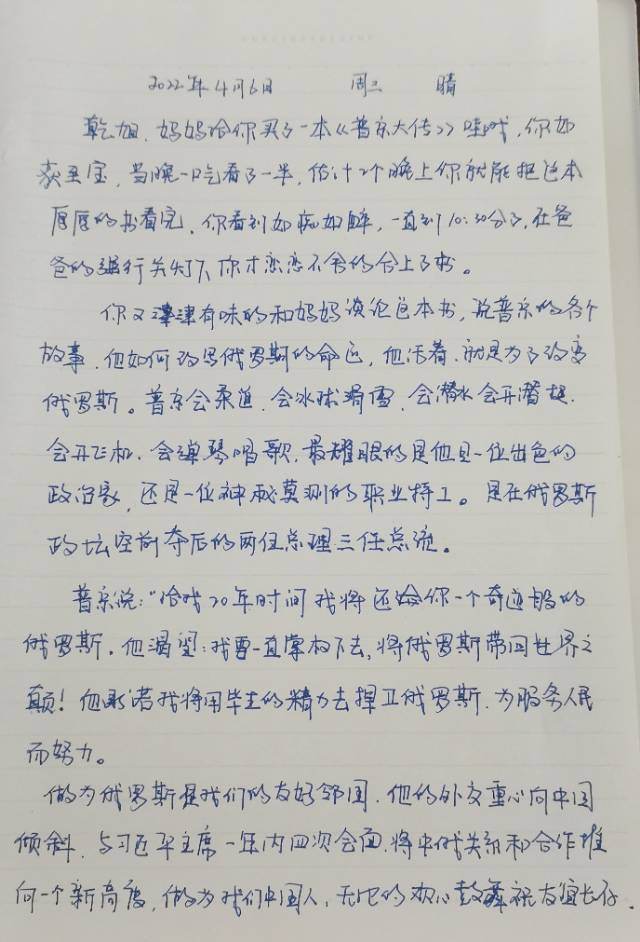 2022年4月6日 周三 晴
乾旭，妈妈给你买了一本《普京大传》哇哦，你如
获至宝，当晚一口气看了一半，估计2个晚上你就能把这本
厚厚的书看完，你看到如痴如醉，一直到10:30分了，在爸
爸的强行关灯下，你才恋恋不舍的合上了书。
你又津津有味的和妈妈谈论这本书，说普京的各个
故事，他如何改写俄罗斯的命运，他活着，就是为了改变
俄罗斯。普京会柔道，会冰球滑雪，会潜水会开潜艇，
会开飞机，会弹琴唱歌，最耀眼的是他是一位出色的
政治家，还是一位神秘莫测的职业特工。是在俄罗斯
政坛空前夺后的两任总理三任总统。
普京说："给我20年时间我将还给你一个奇迹般的
俄罗斯。他渴望：我要一直掌权下去，将俄罗斯带回世界之
巅！他承诺我将用毕生的精力去捍卫俄罗斯，为服务人民
而努力。
做为俄罗斯是我们的友好邻国，他的外交重心向中国
倾斜，与习近平主席一年内四次会面，将中俄关系和合作推
向一个新高度，做为我们中国人，无比的欢心鼓舞祝友谊长存．